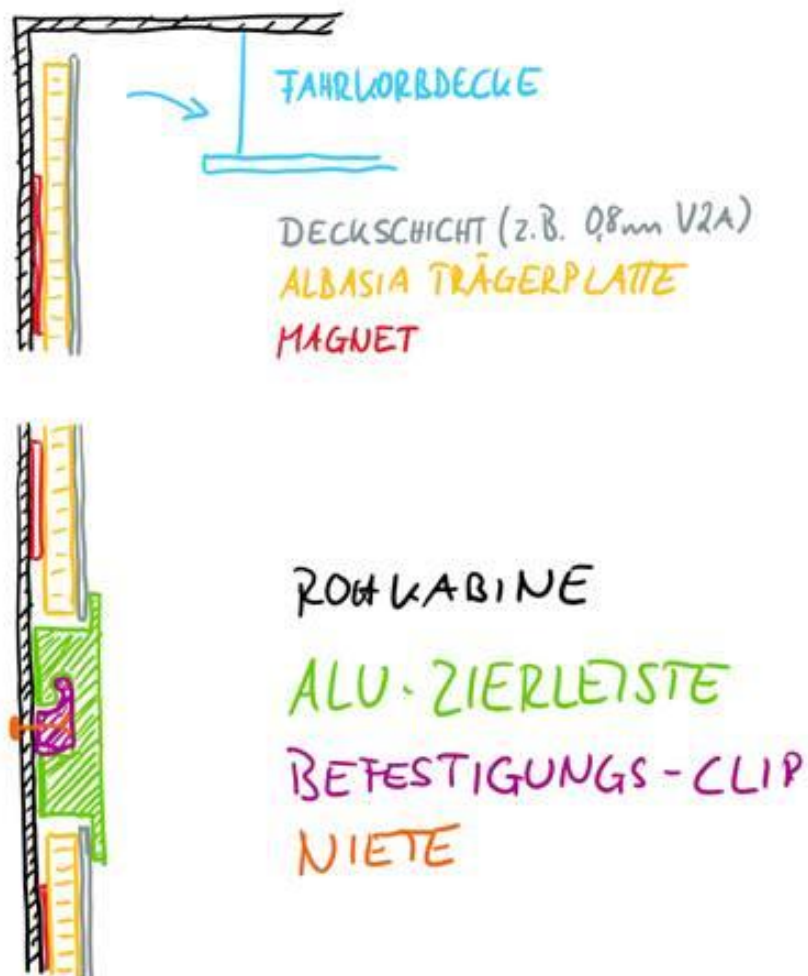 FAHRKORBDECKE
DECKSCHICHT (z.B. 0,8mm V2A)
ALBASIA TRÄGERPLATTE
MAGNET
ROHKABINE
ALU-ZIERLEISTE
BEFESTIGUNGS-CLIP
NIETE